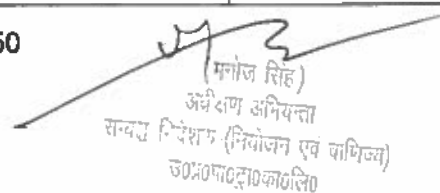 50
(मनोज सिंह)
अधीक्षण अभियन्ता
सम्बद्ध निदेशक (नियोजन एवं वाणिज्य)
उ०प्र०पा०ट्रा०का०लि०